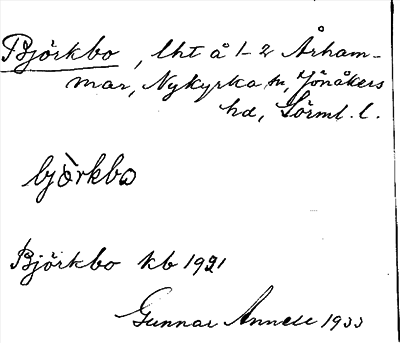 Björkbo, lht å 1-2 Årham-
mar, Nykyrka sn, Jönåkers
hd, Sörml. l.
bjòrkbo
Björkbo kb 1921
Gunnar 1933